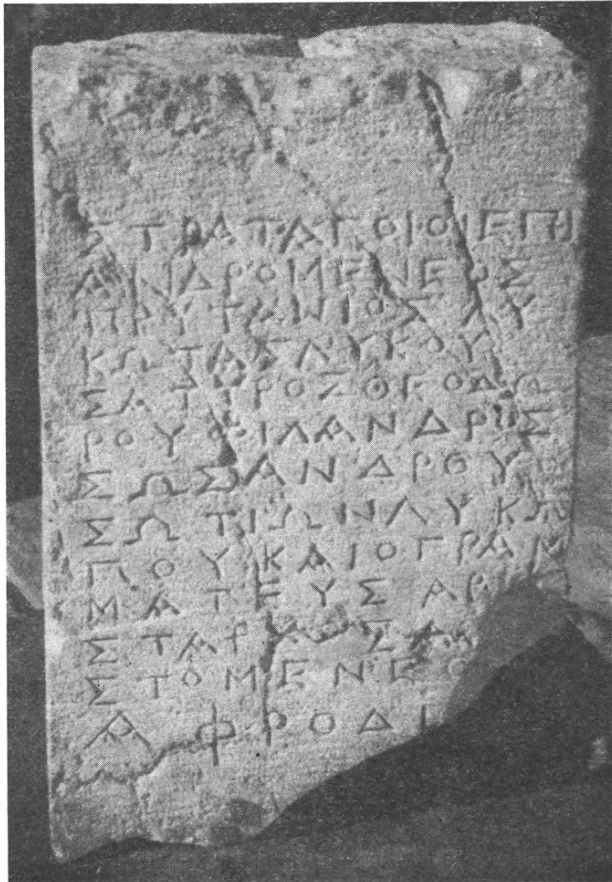 ΣΤΡΑΤΑΓΟΙΟΙΕΠΙ
ΑΝΔΡΟΜΕΝΕΟΣ
ΠΡΥΤΑΝΙΟΣΛΥ
ΚΩΤΑΣΛΥΚΟΥ
ΣΑΤΥΡΟΣΘΕΟΔΩ
ΡΟΥΦΙΛΑΝΔΡΟΣ
ΣΩΣΑΝΔΡΟΥ
ΣΩΤΙΩΝΛΥΚΩ
ΠΟΥΚΑΙΟΓΡΑΜ
ΜΑΤΕΥΣΑΡΙ
ΣΤΑΡΧΟΣΑ
ΣΤΟΜΕΝΕΟ
ΑΦΡΟΔΙ